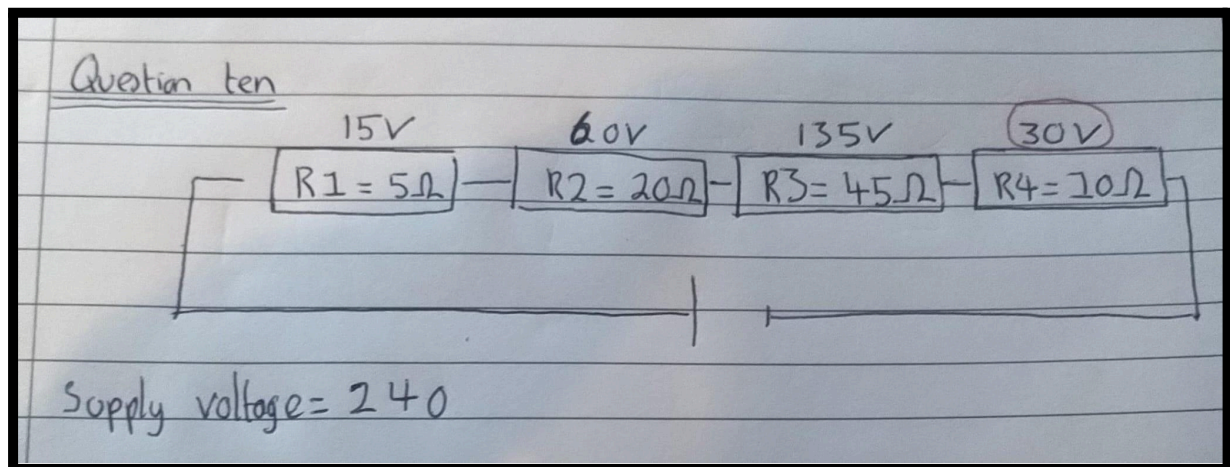 Question ten
15V 60V 135V 30V
R1 = 5Ω R2 = 20Ω R3 = 45Ω R4 = 10Ω
Supply voltage = 240